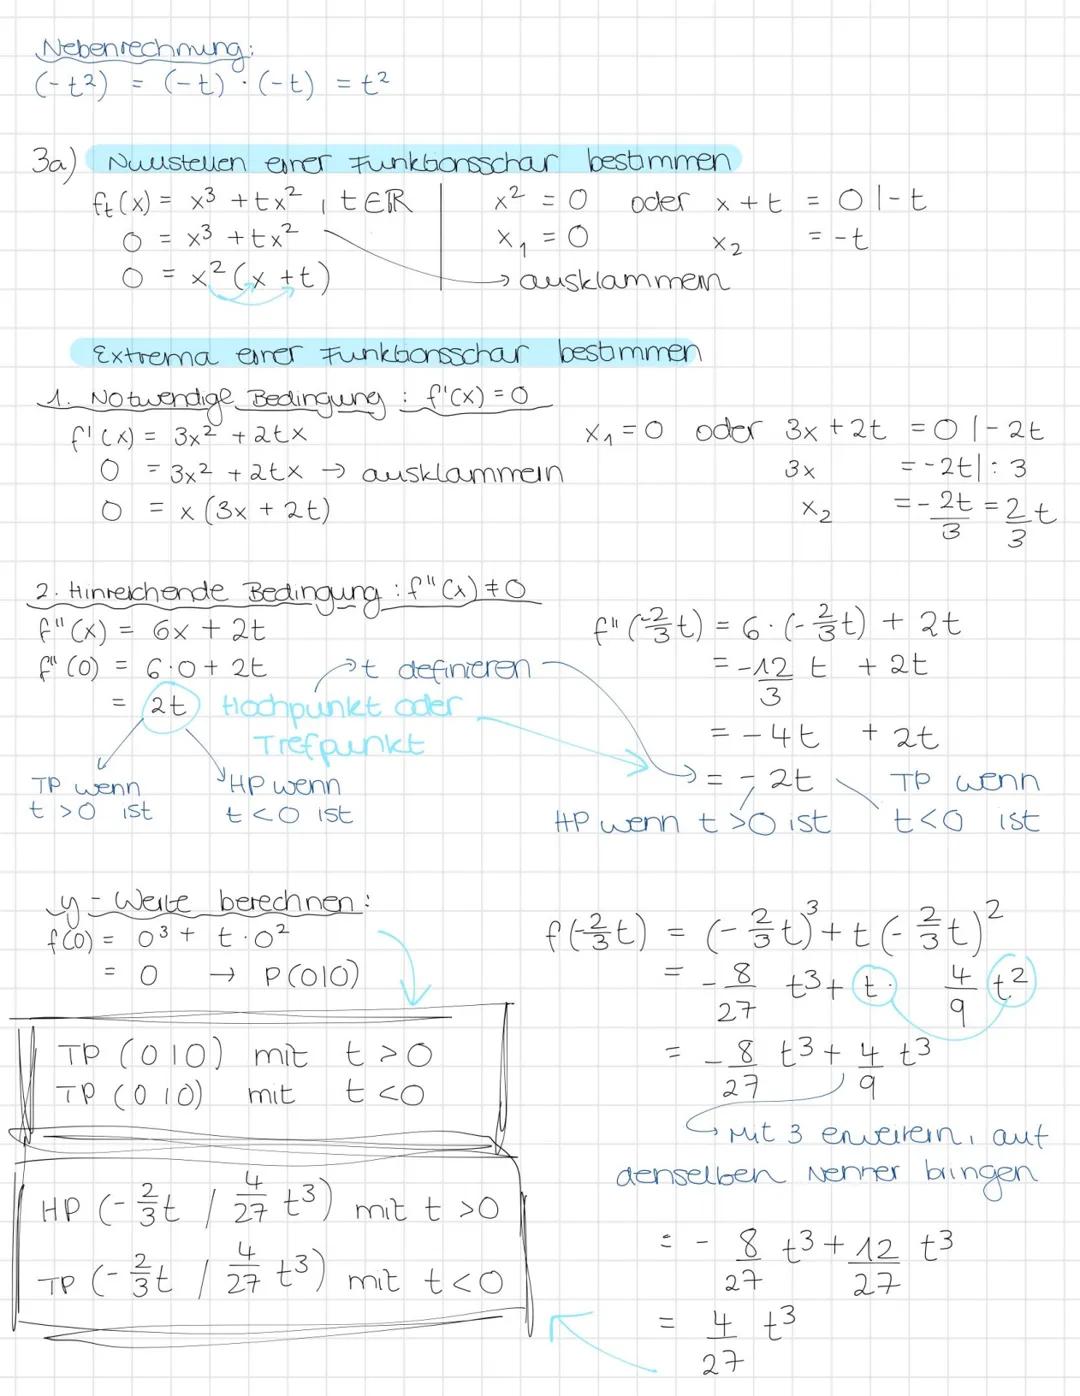 Nebenrechnung:
(-t²) = (-t) · (-t) = t²
3a) Nullstellen einer Funktionsschar bestimmen
fₜ(x) = x³ + tx² , t∈ℝ
0 = x³ + tx²
0 = x² (x + t)
x² = 0 oder x + t = 0 | -t
x₁ = 0 x₂ = -t
→ ausklammern
Extrema einer Funktionsschar bestimmen
1. Notwendige Bedingung : f'(x) = 0
f'(x) = 3x² + 2tx
0 = 3x² + 2tx → ausklammern
0 = x (3x + 2t)
x₁ = 0 oder 3x + 2t = 0 | - 2t
3x = -2t | : 3
x₂ = - 2t/3 = 2/3 t
2. Hinreichende Bedingung : f"(x) ≠ 0
f"(x) = 6x + 2t
f"(0) = 6·0 + 2t
= 2t
→ t definieren
Hochpunkt oder
Trefpunkt
TP wenn
t > 0 ist
HP wenn
t < 0 ist
f"(-2/3 t) = 6 · (-2/3 t) + 2t
= -12/3 t + 2t
= - 4t + 2t
→ = - 2t
HP wenn t > 0 ist
TP wenn
t < 0 ist
y - Werte berechnen :
f(0) = 0³ + t · 0²
= 0 → P(0|0)
TP (0|0) mit t > 0
TP (0|0) mit t < 0
HP (-2/3 t / 4/27 t³) mit t > 0
TP (-2/3 t / 4/27 t³) mit t < 0
f(-2/3 t) = (-2/3 t)³ + t (-2/3 t)²
= - 8/27 t³ + t · 4/9 t²
= - 8/27 t³ + 4/9 t³
→ Mit 3 erweitern, auf
denselben Nenner bringen
= - 8/27 t³ + 12/27 t³
= 4/27 t³